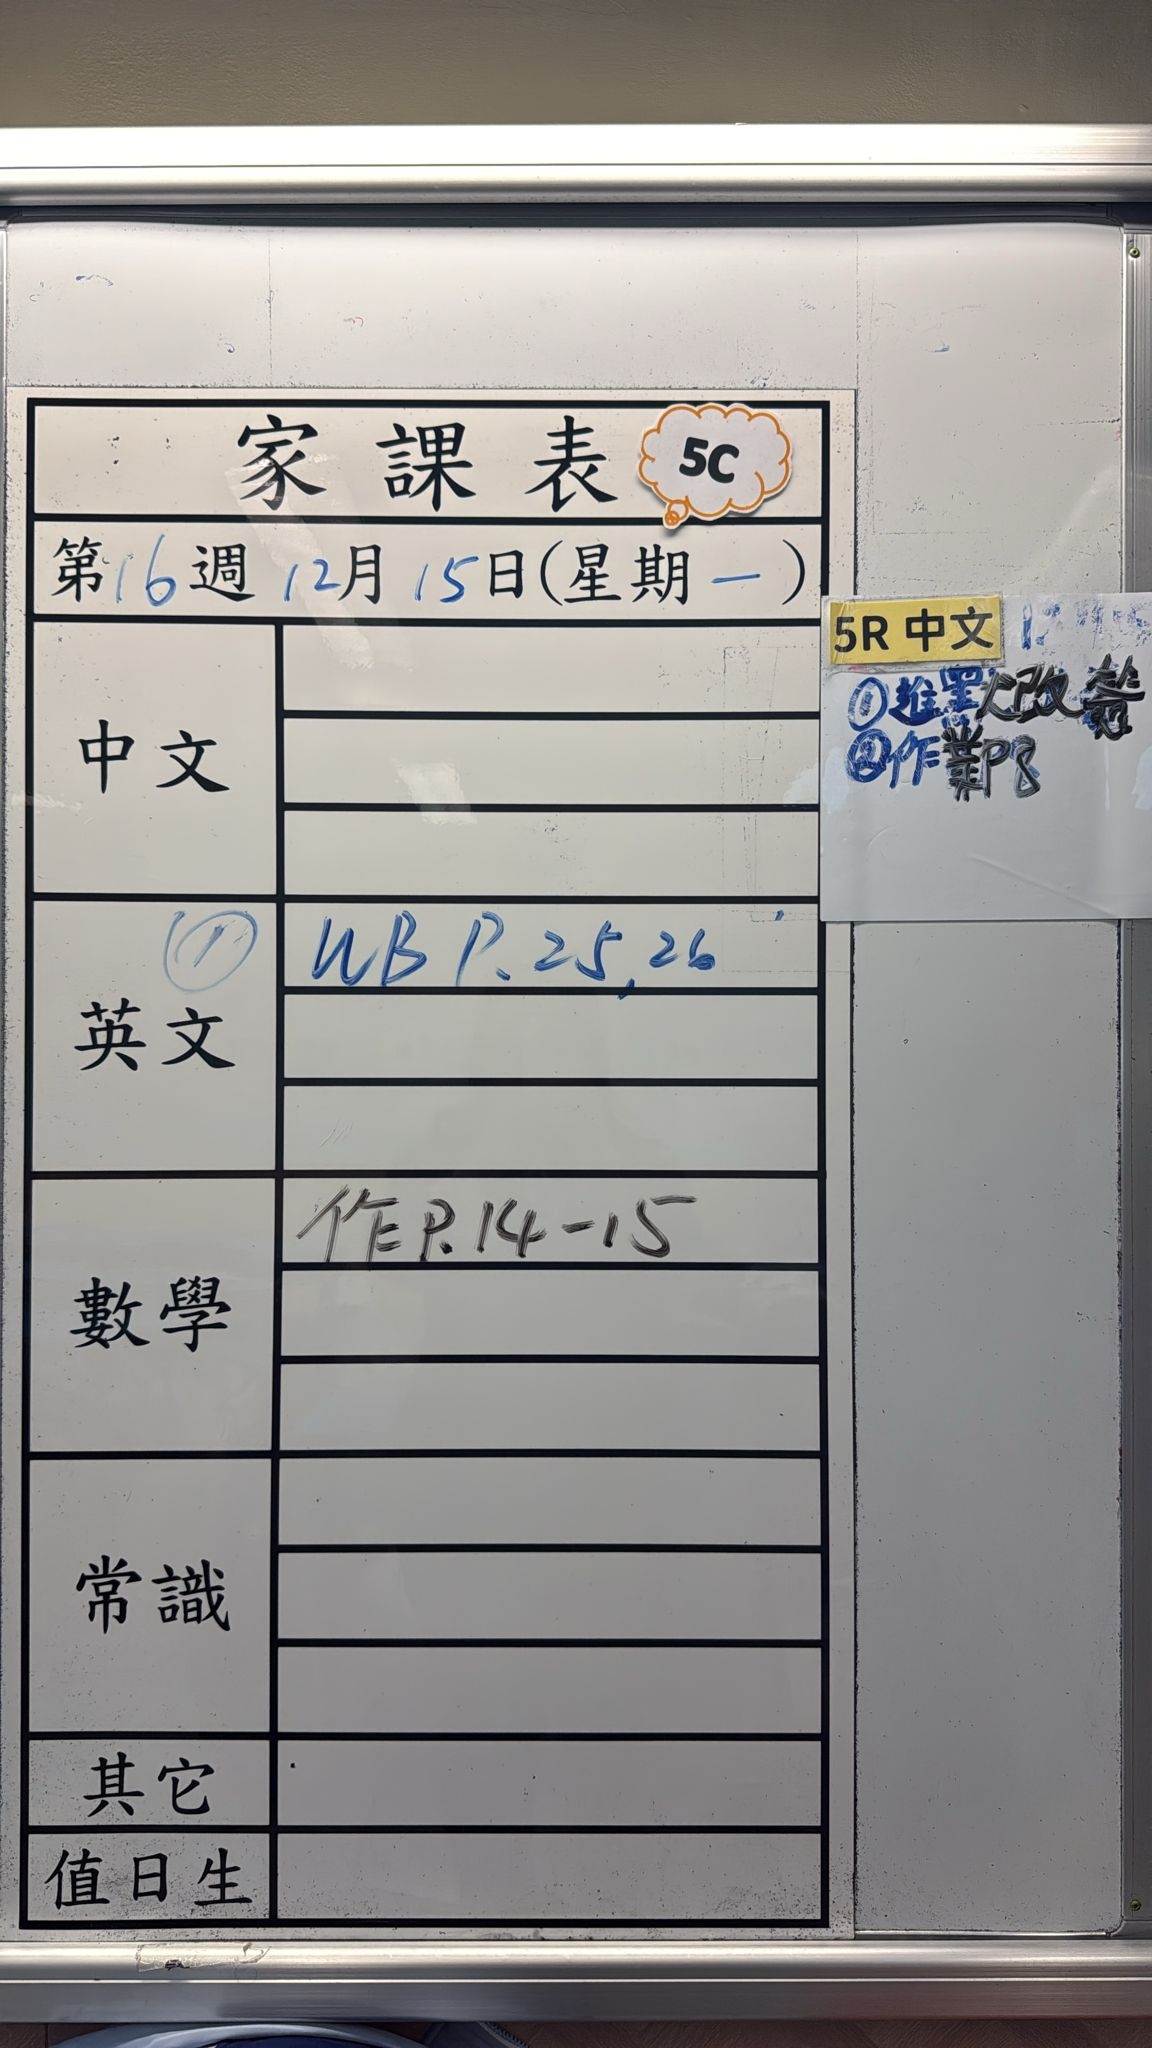 家課表 5C
第16週 12月 15日(星期一)
中文
英文 ① WB P. 25, 26
數學 作 P. 14-15
常識
其它
值日生
5R 中文
① 進 改
② 作業 P8